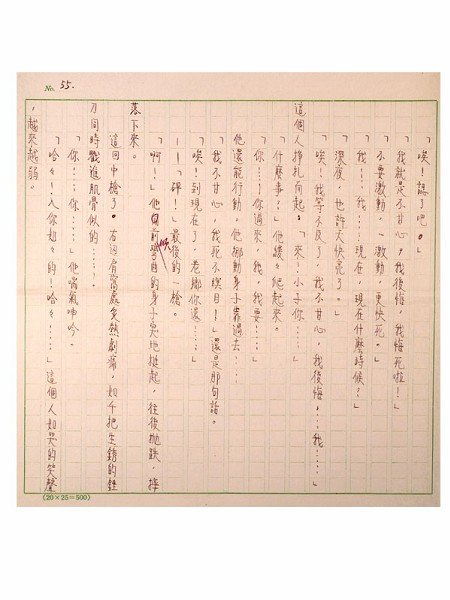 No. 55.
「唉！認了吧。」
「我就是不甘心，我後悔，我悔死啦！」
「不要激動，一激動，更快死。」
「我……我……現在，現在什麼時候？」
「深夜，也許天快亮了。」
「唉！我等不及了，我不甘心，我後悔……我……」
這個人掙扎向起：「來！小子你……」
「什麼事？」他緩々爬起來。
「你……你過來，我，我要……」
他還能行動，他挪動身子靠過去……
「我不甘心，我死不瞑目！」還是那句話。
「唉！到現在了，老鄉你還……」
——「砰！」最後的一槍。
「啊！」他向前彎曲的身子突地挺起，往後拋跌，摔
落下來。
這回中槍了。右肩窩處灸熱劇痛，如千把生銹的錐
刀同時戳進肌骨似的……。
「你……你……」他喘氣呻吟。
「哈々！入你如々的！哈々……」這個人如哭的笑聲
，越來越弱。
(20×25=500)